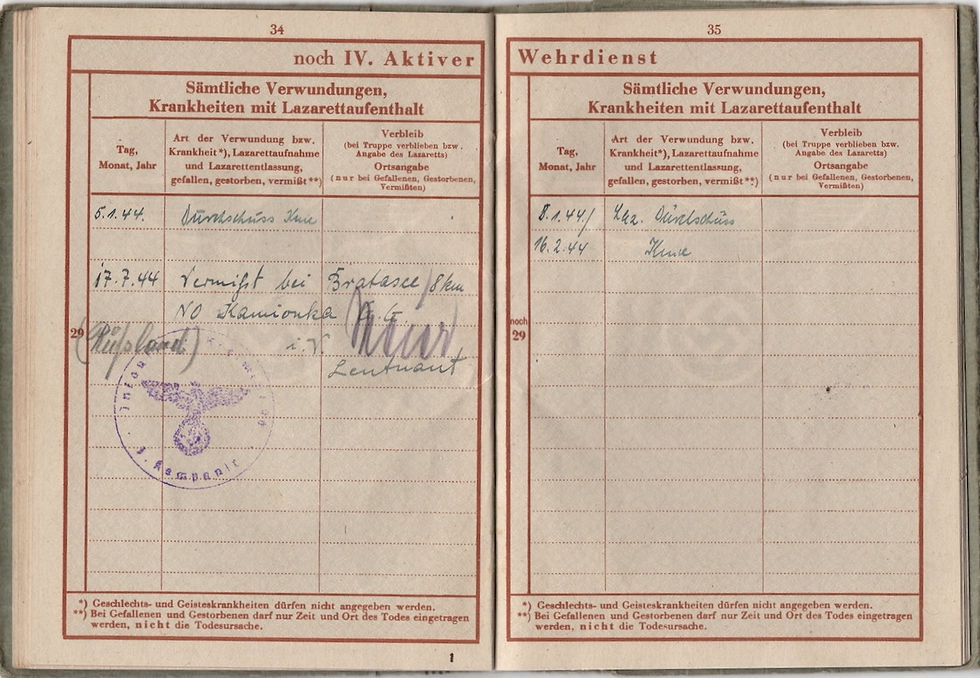 34
noch IV. Aktiver
Sämtliche Verwundungen,
Krankheiten mit Lazarettaufenthalt
Tag,
Monat, Jahr
Art der Verwundung bzw.
Krankheit*), Lazarettaufnahme
und Lazarettentlassung,
gefallen, gestorben, vermißt**)
Verbleib
(bei Truppe verblieben bzw.
Angabe des Lazaretts)
Ortsangabe
(nur bei Gefallenen, Gestorbenen,
Vermißten)
5.1.44. Durchschuss Knie
17.7.44 Vermißt bei Bratasee/8 km
NO Kamionka
29
(Rußland) i.V.
Leutnant
Kompanie
*) Geschlechts- und Geisteskrankheiten dürfen nicht angegeben werden.
**) Bei Gefallenen und Gestorbenen darf nur Zeit und Ort des Todes eingetragen
werden, nicht die Todesursache.
1
35
Wehrdienst
Sämtliche Verwundungen,
Krankheiten mit Lazarettaufenthalt
Tag,
Monat, Jahr
Art der Verwundung bzw.
Krankheit*), Lazarettaufnahme
und Lazarettentlassung,
gefallen, gestorben, vermißt**)
Verbleib
(bei Truppe verblieben bzw.
Angabe des Lazaretts)
Ortsangabe
(nur bei Gefallenen, Gestorbenen,
Vermißten)
8.1.44/ Laz. Durchschuss
16.2.44 Knie
noch
29
*) Geschlechts- und Geisteskrankheiten dürfen nicht angegeben werden.
**) Bei Gefallenen und Gestorbenen darf nur Zeit und Ort des Todes eingetragen
werden, nicht die Todesursache.